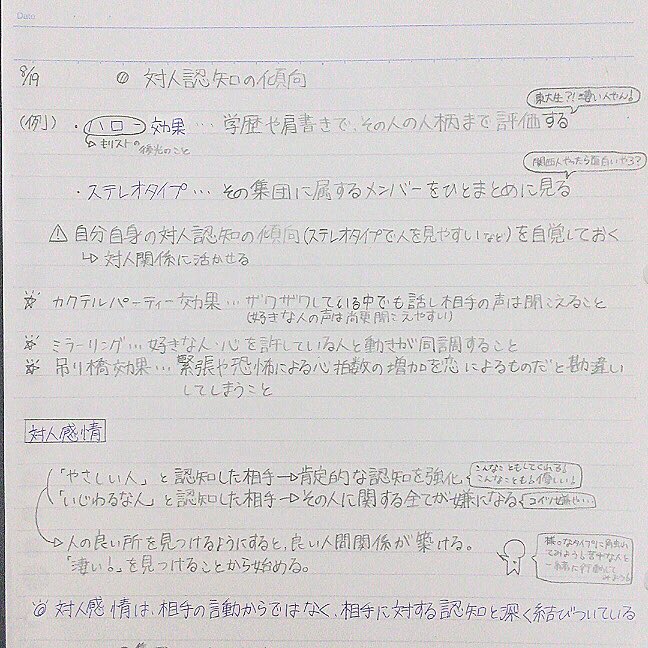 Date
8/19 ◎ 対人認知の傾向
東大生?!凄い人やん!
(例)・ハロー効果…学歴や肩書きで、その人の人柄まで評価する
↳キリストの後光のこと
関西人やったら面白いやろ?
・ステレオタイプ…その集団に属するメンバーをひとまとめに見る
⚠自分自身の対人認知の傾向(ステレオタイプで人を見やすいなど)を自覚しておく
↳対人関係に活かせる
☆カクテルパーティー効果…ザワザワしている中でも話し相手の声は聞こえること
(好きな人の声は尚更聞こえやすい)
☆ミラーリング…好きな人・心を許している人と動きが同調すること
☆吊り橋効果…緊張や恐怖による心拍数の増加を恋によるものだと勘違い
してしまうこと
対人感情
「やさしい人」と認知した相手→肯定的な認知を強化
こんなこともしてくれる!
こんなことも!優しい!
「いじわるな人」と認知した相手→その人に関する全てが嫌になる
コイツ嫌や…
→人の良い所を見つけるようにすると、良い人間関係が築ける。
「凄い!」を見つけることから始める。
様々なタイプに
てみよう!苦手な人と
一緒に行動して
みよう!
◎対人感情は、相手の言動からではなく、相手に対する認知と深く結びついている